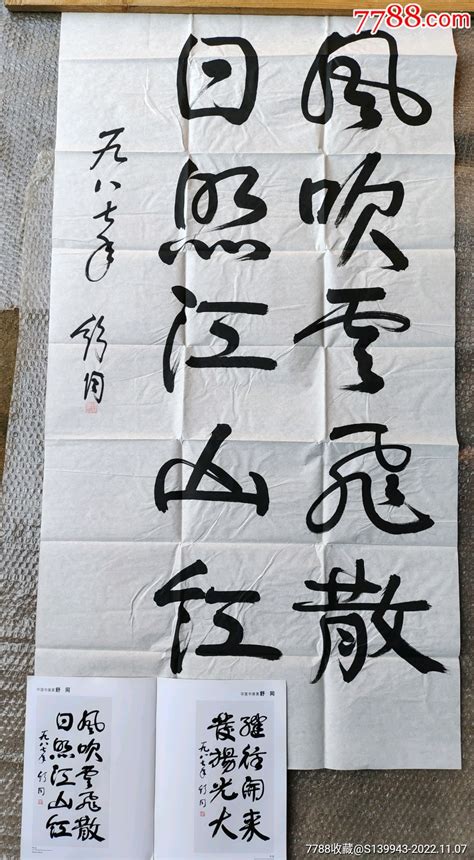 7788.com
風吹雲飛散
日照江山红
一九八七年 舒同
中国书画家 舒同
風吹雲飛散
日照江山红
一九八七年 舒同
中国书画家 舒同
继往開来
發揚光大
一九八七年 舒同
7788收藏@S139943-2022.11.07